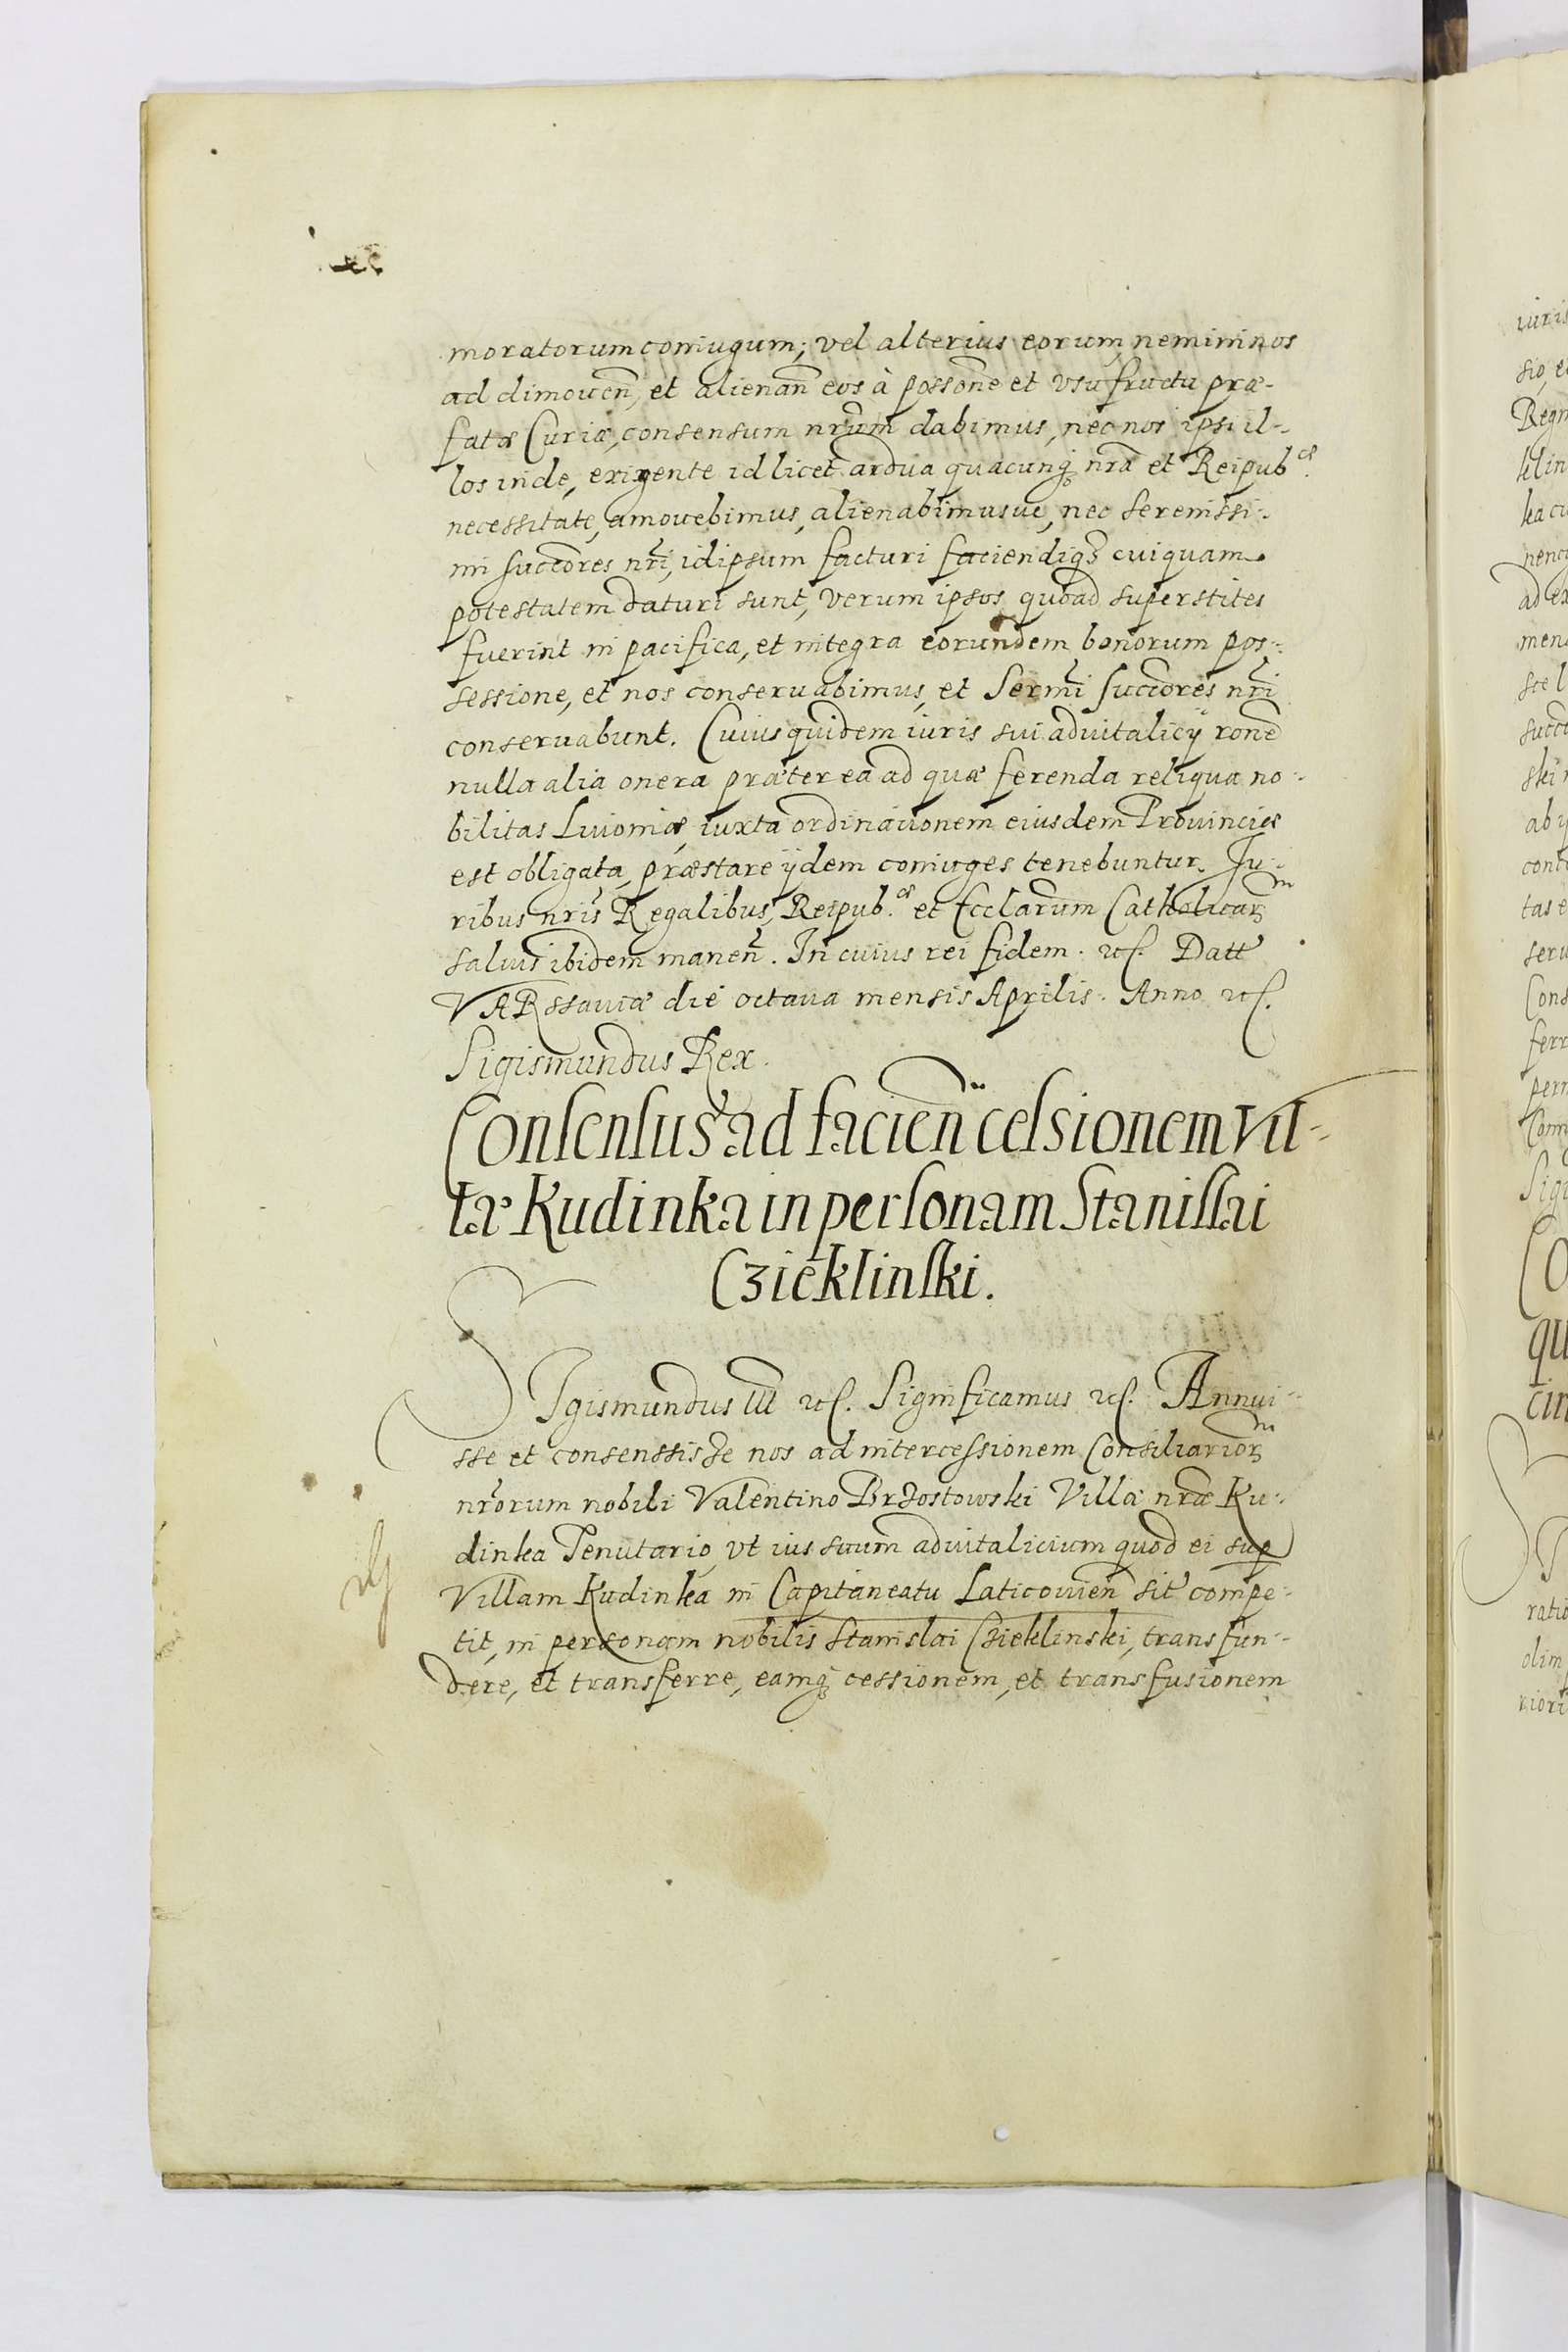 moratorum coniugum; vel alterius eorum, nemini nos
ad dimoven̄, et alienan̄ eos à possōne et vsufructu præ-
fatæ Curiæ, consensum nr̄um dabimus, nec nos ipsi il-
los inde, exigente id licet ardua quacunqꝫ nrā et Reipub.cæ
necessitate, amouebimus, alienabimusue, nec Serenissi-
mi succōres nrī, idipsum facturi faciendiqꝫ cuiquam
potestatem daturi sunt, verum ipsos quoad superstites
fuerint in pacifica, et integra eorundem bonorum pos-
sessione, et nos conseruabimus, et Sermi succōres nrī
conseruabunt. Cuius quidem iuris sui aduitalicÿ rōne
nulla alia onera præter ea ad quæ ferenda reliqua no-
bilitas Liuoniæ, iuxta ordinationem eiusdem Prouinciæ
est obligata, præstare ÿdem coniuges tenebuntur. Ju-
ribus nrīs Regalibus, Reipub.cæ et Ecclārum Catholicarꝫ
saluis ibidem manen̄. In cuius rei fidem. etc. Datt
VARssauiæ die octaua mensis Aprilis. Anno etc.
Sigismundus Rex.
Consensus ad facien̄ cessionem vil-
læ Kudinka in personam Stanislai
Czieklinski.
SIgismundus III etc. Significamus etc. Annui-
sse et consenssisse nos ad intercessionem Consiliariorꝫ
nrōrum nobili Valentino Brzostowski Villæ nræ Ku-
dinka Tenutario, vt ius suum aduitalicium quod ei sup
Villam Kudinka in Capitaneatu Laticouien̄ sit compe-
tit, in personam nobilis Stanislai Czieklinski, transfun-
dere, et transferre, eamqꝫ cessionem, et transfusionem